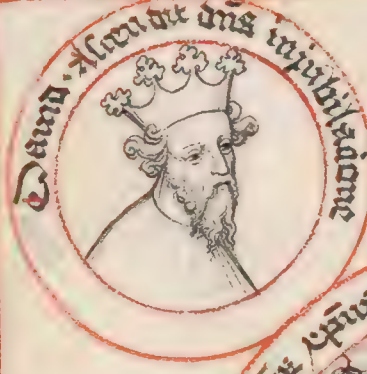 Dauid. Ascendit dn̄s in iubilacione